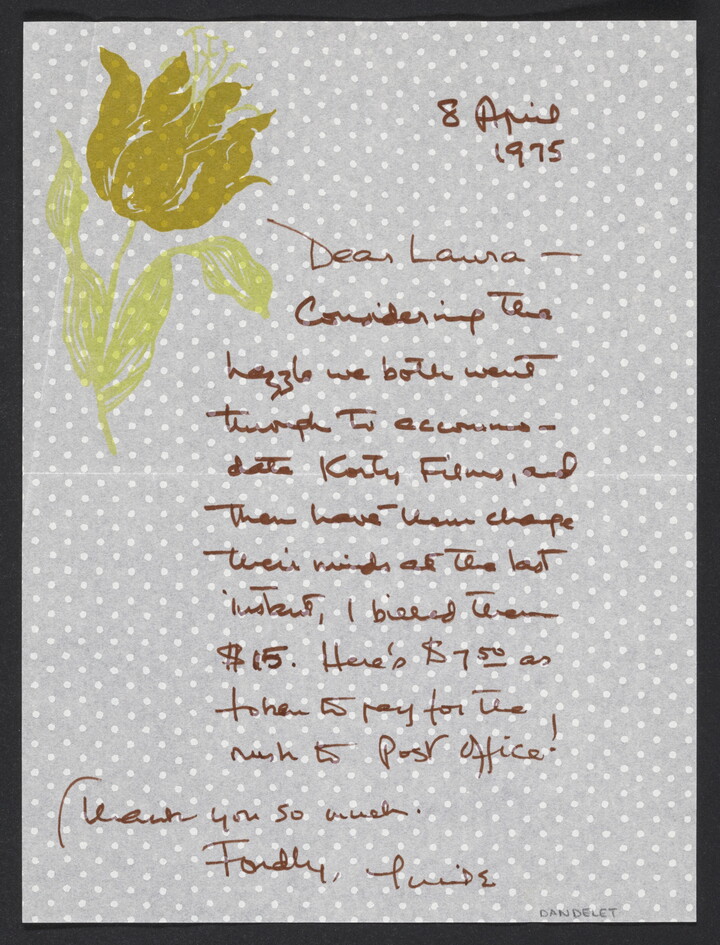 8 April
1975
Dear Laura —
Considering the
hazzle we both went
through to accommo-
date Korty Films, and
then have them change
their minds at the last
instant, I billed them
$15. Here's $7 50 as
token to pay for the
rush to Post Office!
Thank you so much.
Fondly,
DANDELET